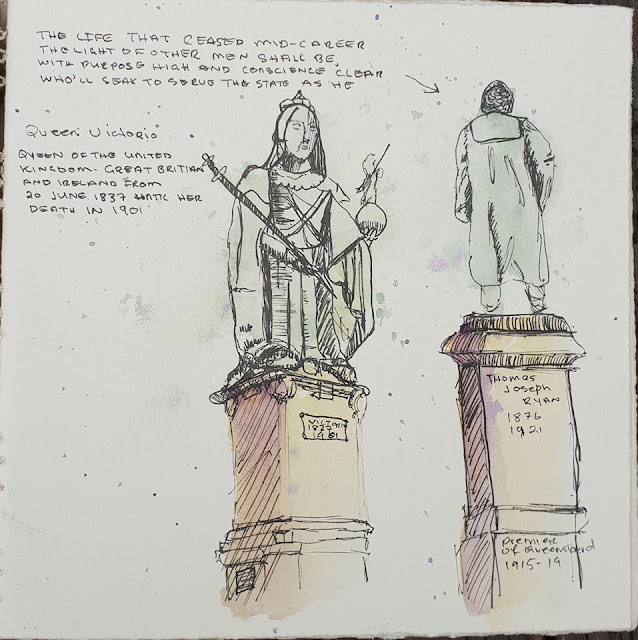 THE LIFE THAT CEASED MID-CAREER
THE LIGHT OF OTHER MEN SHALL BE,
WITH PURPOSE HIGH AND CONSCIENCE CLEAR
WHO'LL SEAK TO SERVE THE STATE AS HE
Queen Victoria
QUEEN OF THE UNITED
KINGDOM. GREAT BRITIAN
AND IRELAND FROM
20 JUNE 1837 UNTIL HER
DEATH IN 1901
VICTORIA
1837
1901
THOMAS
JOSEPH
RYAN
1876
1921
Premier
of Queensland
1915-19